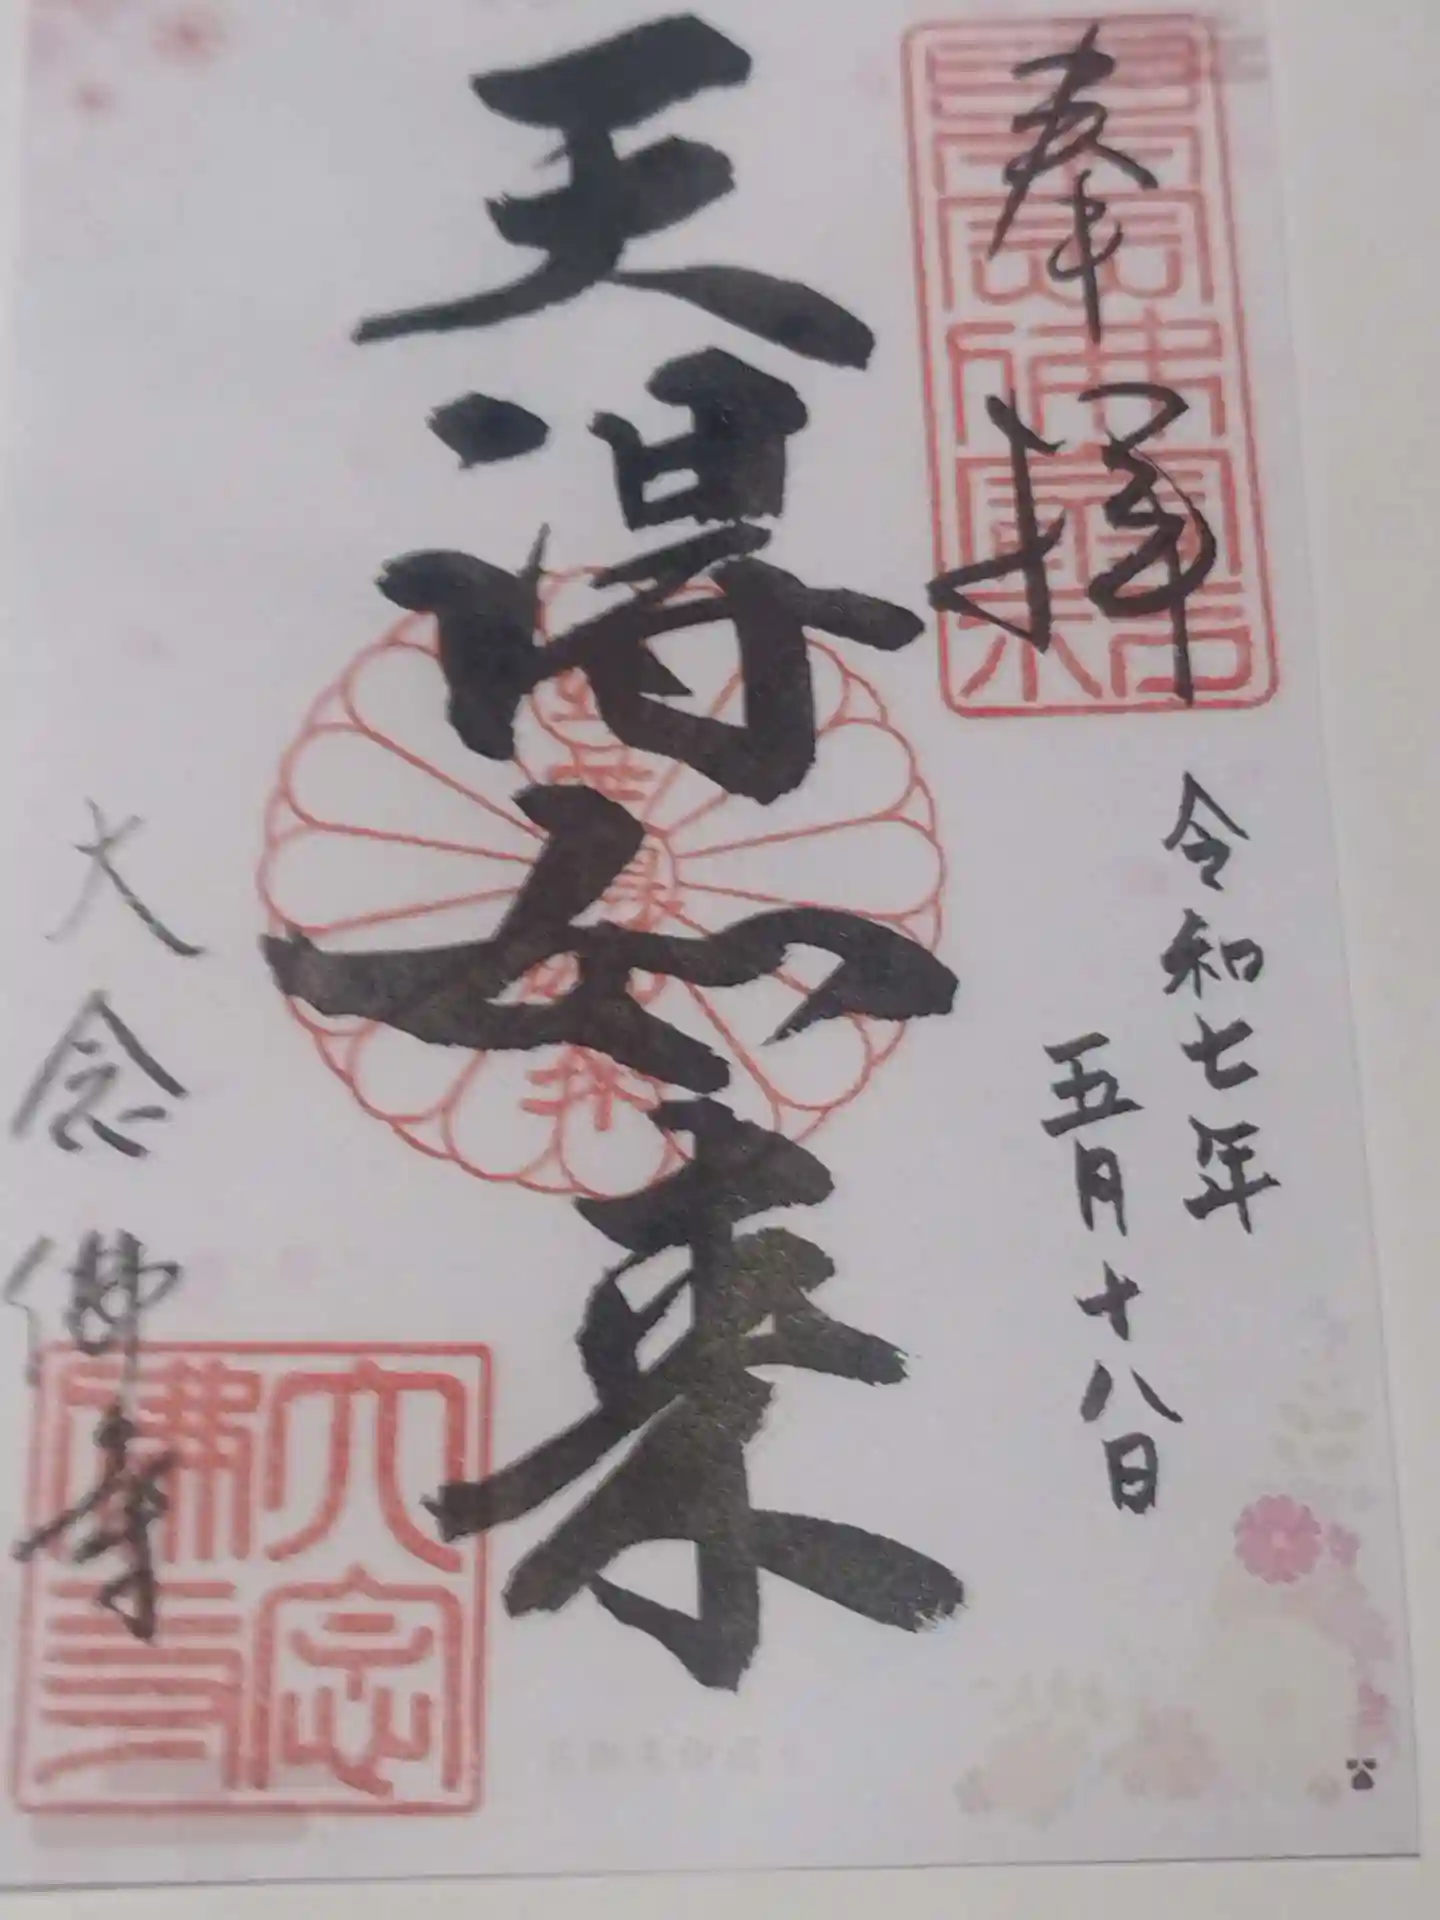 奉拝
令和七年
五月十八日
天得如来
大念佛寺
大念
佛寺